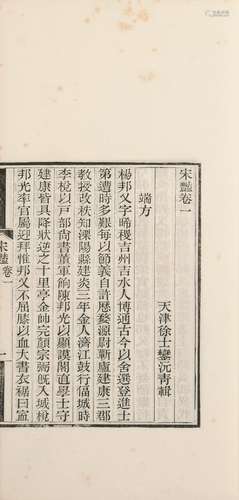 宋豔卷一
天津徐士鑾沅青輯
端方
楊邦乂字晞稷吉州吉水人博通古今以舍選登進士
第遭時多艱每以節義自許歷婺源尉蘄廬建康三郡
教授改秩知溧陽縣建炎三年金人濟江鼓行逼城時
李梲以戶部尚書董軍餉陳邦光以顯謨閣直學士守
建康皆具降狀逆之十里亭金帥完顏宗弼旣入城梲
邦光率官屬迎拜惟邦乂不屈膝以血大書衣裾曰寧
宋豔 卷一 一